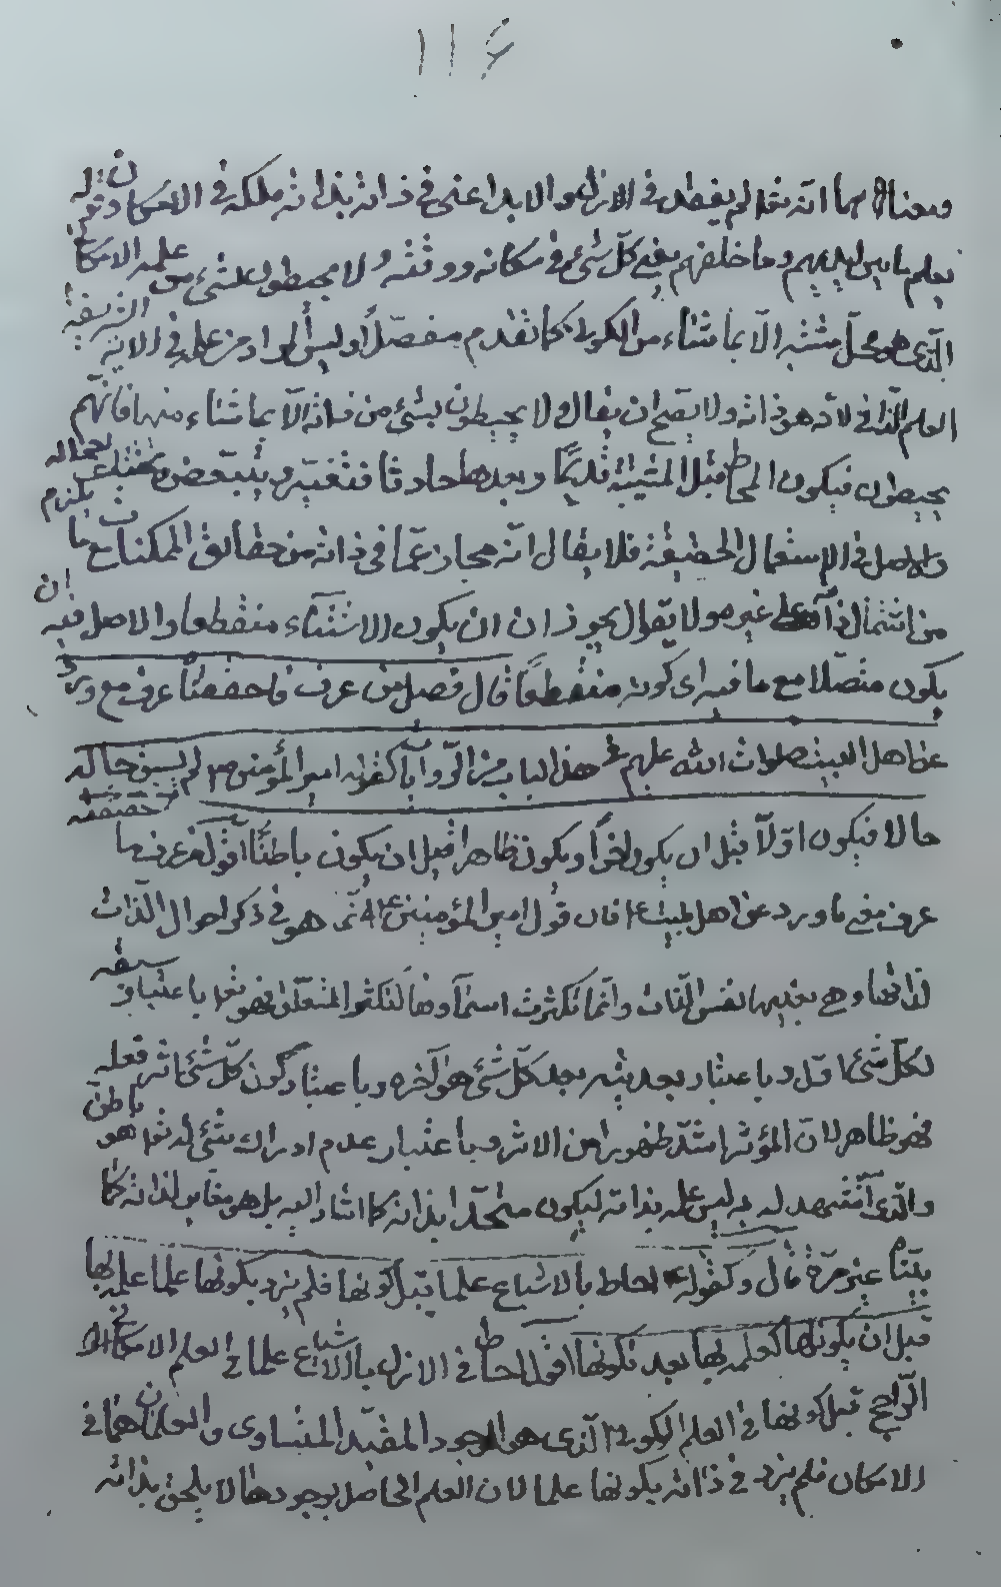 ١١٤
ومعناهما انه تعالى لم يفقد في الازل والابد اعني في ذاته بذاته ملكه في الامكان وقوله
يعلم ما بين ايديهم وما خلفهم يعني كل شئ في مكانه ووقته ولا يحيطون بشئ من علمه الامكاني
الذي هو محل مشيته الا بما شاء من الكون كما تقدم مفصلاً وليس المراد من علمه في الاية الشريفة
العلم الذاتي لانه هو ذاته ولا يصح ان يقال ولا يحيطون بشئ من ذاته الا بما شاء منها فانهم
يحيطون فيكون المحاط قبل المشية قديمًا وبعدها حادثا فتغير ويتبعض
والاصل في الاستعمال الحقيقة فلا يقال انه مجاز عما في ذاته من حقائق الممكنات مع ما يلزم
من اشتمال ذاته على غيره ولا يقال يجوز ان يكون الاستثناء منقطعا والاصل فيه ان
يكون متصلا مع ما فيه اي كونه منقطعًا قال فصل من عرف ما حققنا عرف مع ورد
عن اهل البيت صلوات الله عليهم في هذا الباب من الروايات كقول امير المؤمنين ع لم يسبق حاله
حالا فيكون اولاً قبل ان يكون اخراً ويكون ظاهرا قبل ان يكون باطنًا اقول من عرف ما حققته
عرف معنى ما ورد عن اهل البيت ع فان قول امير المؤمنين ع انما هو في ذكر احوال الذات
لذاتها وهي بعينها نفس الذات وانما تكثرت اسماؤها لتكثر المتعلق فهو تعالى باعتبار سبقه
لكل شئ اول وباعتبار بعديته بعد كل شئ هو آخره وباعتبار كون كل شئ اثر فعله
فهو ظاهر لان المؤثر اشد ظهورا من الاثر وباعتبار عدم ادراك شئ له تعالى هو باطن
والذي نشهد له به ليس علمه بذاته ليكون متحدا بذاته كما اشار اليه بل هو مغاير لذاته كما
بيناه غير مرة قال وكقوله ع احاط بالاشياء علما قبل كونها فلم يزد بكونها علما علمه بها
قبل ان يكونها كعلمه بها بعد تكونها اقول احاط في الازل بالاشياء علما في العلم الامكاني
الراجح قبل كونها في العلم الكوني الذي هو الوجود المقيد المتساوي والعلمان هما في
الامكان فلم يزد في ذاته بكونها علما لان العلم الحاصل بوجودها لا يلحق بذاته